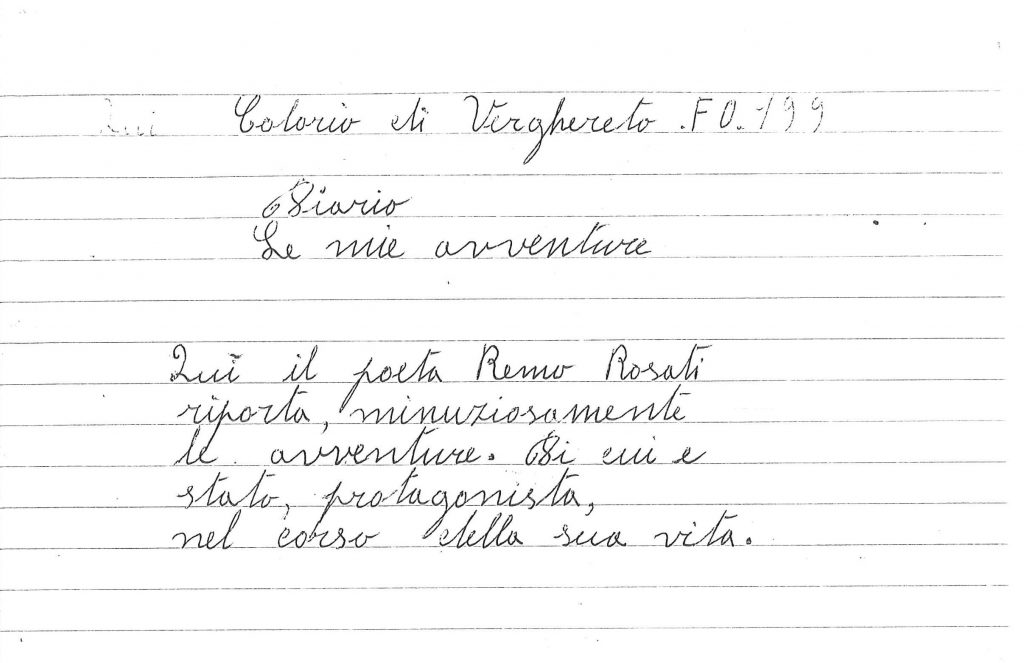 Qui Colorio di Verghereto .FO.199
Diario
Le mie avventure
Quì il poeta Remo Rosati
riporta, minuziosamente
le avventure. Di cui e
stato, protagonista,
nel corso della sua vita.